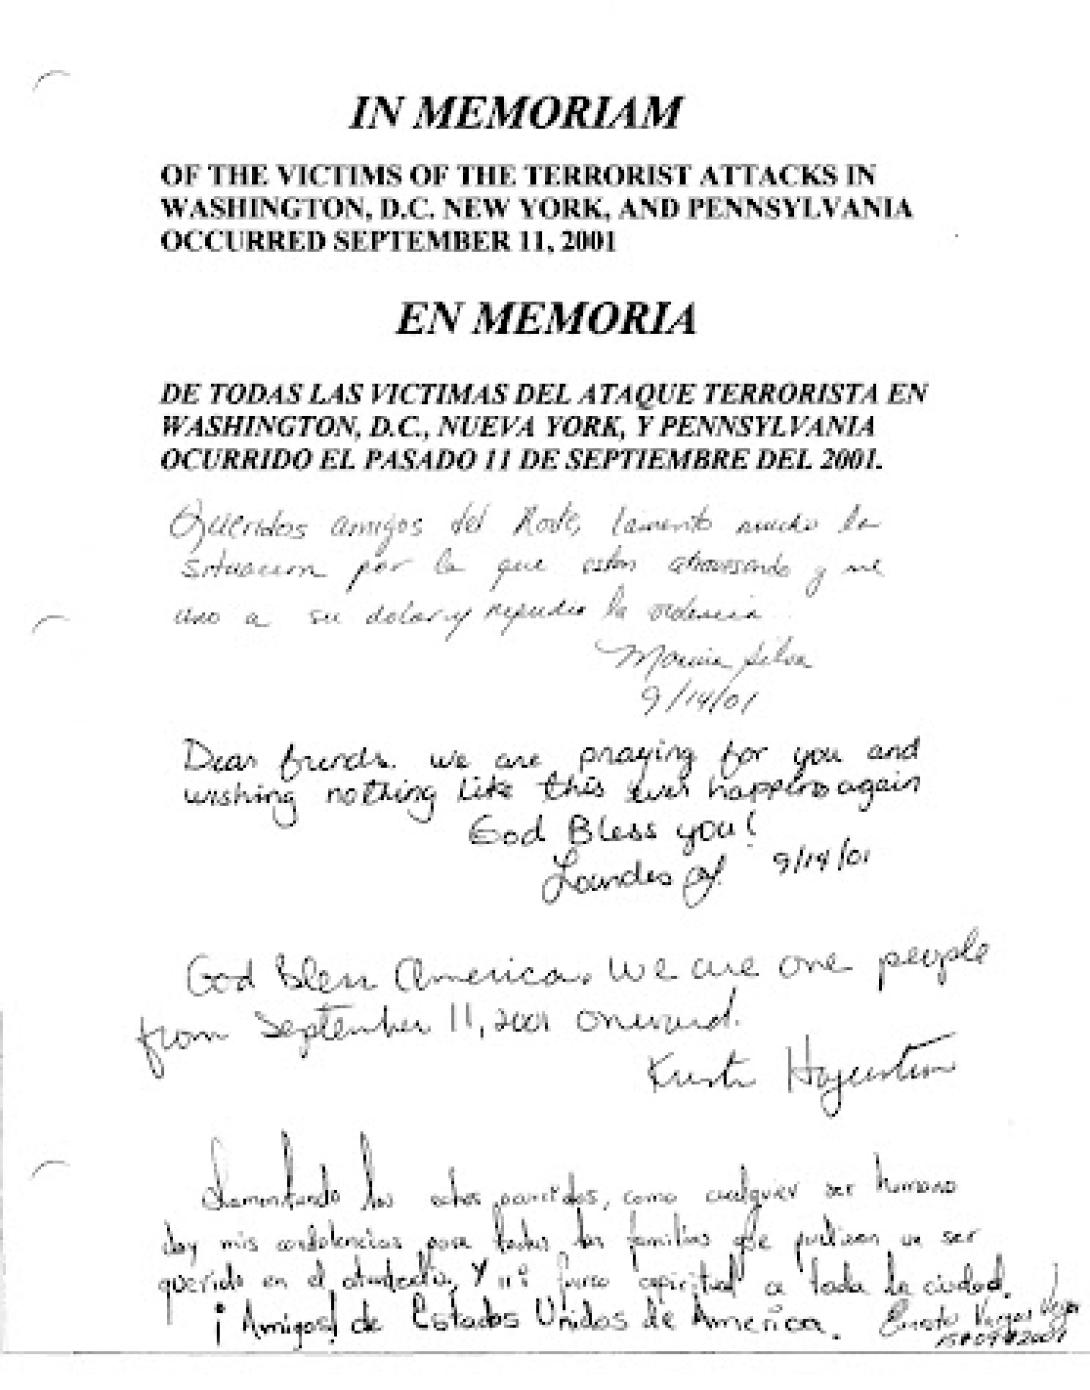 IN MEMORIAM
OF THE VICTIMS OF THE TERRORIST ATTACKS IN
WASHINGTON, D.C. NEW YORK, AND PENNSYLVANIA
OCCURRED SEPTEMBER 11, 2001
EN MEMORIA
DE TODAS LAS VICTIMAS DEL ATAQUE TERRORISTA EN
WASHINGTON, D.C., NUEVA YORK, Y PENNSYLVANIA
OCURRIDO EL PASADO 11 DE SEPTIEMBRE DEL 2001.
Queridos amigos del Norte, lamento mucho la
situacion por la que estan atravesando y me
uno a su dolor y repudio la violencia.
Silva
9/14/01
Dear friends. we are praying for you and
wishing nothing like this ever happens again
God Bless you!
Lourdes 9/14/01
God Bless America, We are one people
from September 11, 2001 onward.
Lamentando los, como cualquier ser humano
doy mis condolencias para todas las familias que un ser
querido en el, Y mi espiritual a toda la ciudad.
¡Amigos! de Estados Unidos de America. Vargas